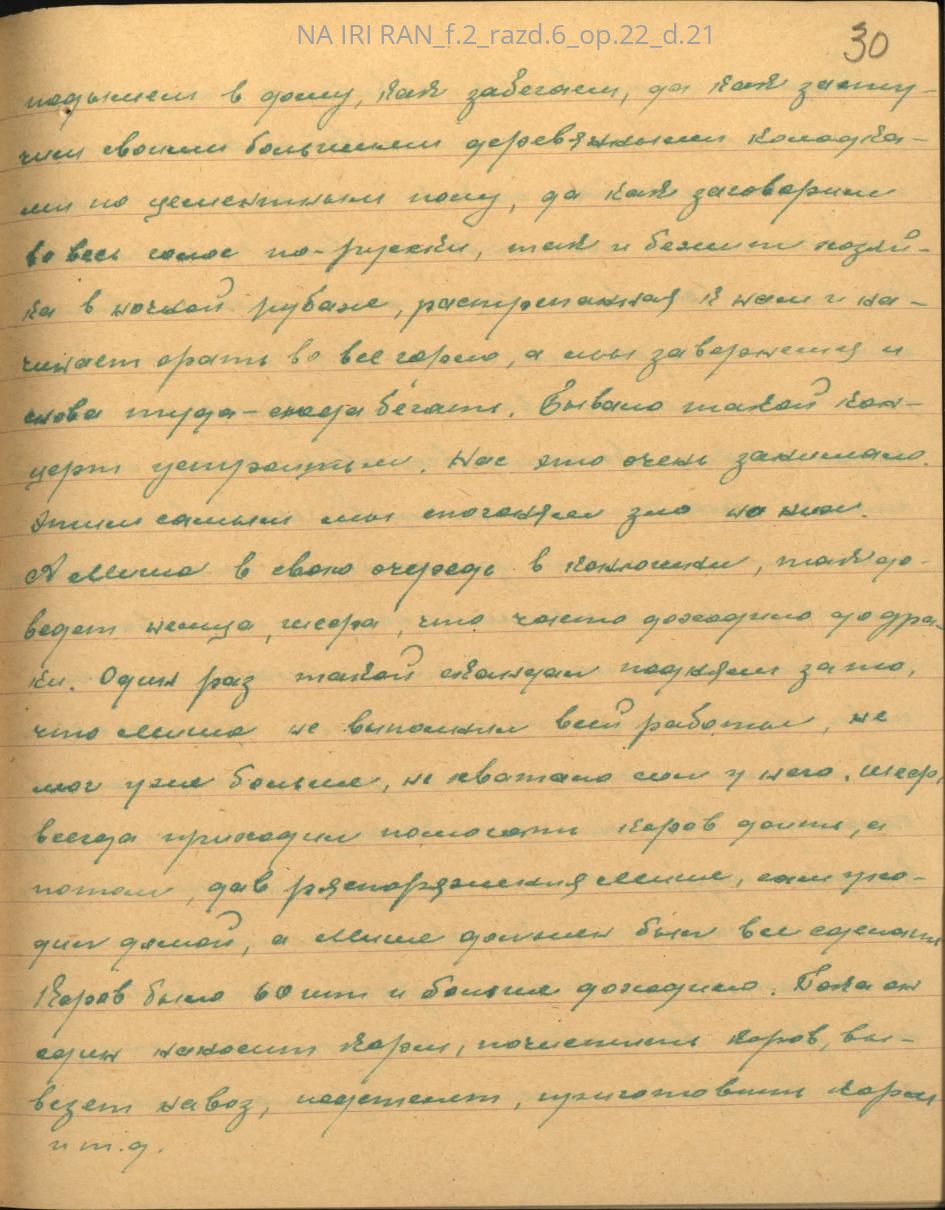 NA IRI RAN_f.2_razd.6_op.22_d.21
30
подымем в дому, как забегаем, да как засту-
чим своими большими деревянными колодка-
ми по цементным полу, да как заговорим
во весь голос по-русски, так и бежит хозяй-
ка в ночной рубахе, растрепанная к нам и на-
чинает орать во все горло, а мы завернемся и
снова туда-сюда бегать. Бывало такой кон-
церт устроитьем. Нас это очень занимало.
Этим самым мы сгоняем зло на них.
А Миша в свою очередь в конюшни, так до-
ведет немца, шефа, что часто доходило до дра-
ки. Один раз такой скандал подняли за то,
что Миша не выполнил всей работы, не
мог уже больше, не хватало сил у него. Шеф,
всегда приходил помогать коров доить, а
потом, дав распоряжения Мише, сам ухо-
дил домой, а Миша должен был все сделать
Коров было 60 шт и больше доходило. Пока он
один наносит корм, почистить коров, вы-
везет навоз, подстелет, приготовить корм
и т.д.